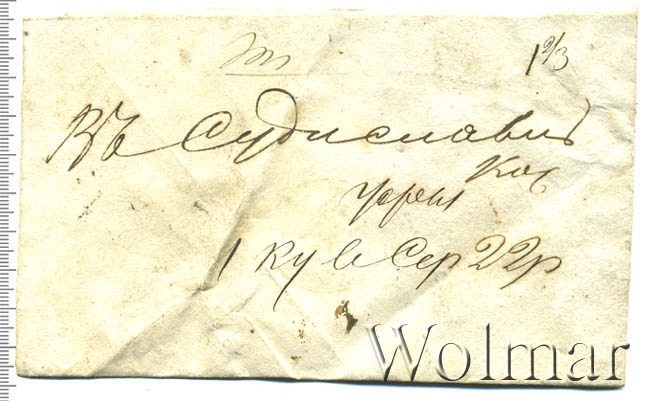 1 2/3
Въ Судиславль
Кос
1 ку в Сер 22р
Wolmar